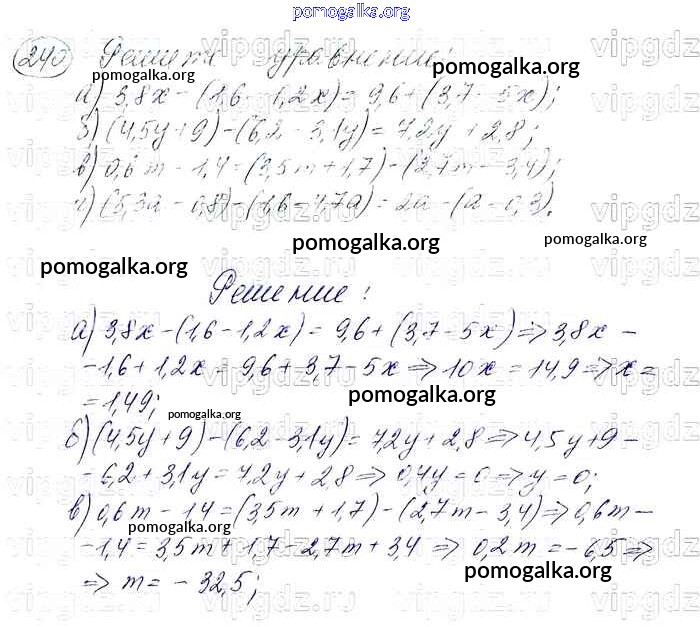 pomogalka.org
240 Решите уравнение:
а) 3,8x - (1,6 - 1,2x) = 9,6 + (3,7 - 5x);
б) (4,5y + 9) - (6,2 - 3,1y) = 7,2y + 2,8;
в) 0,6m - 1,4 = (3,5m + 1,7) - (2,7m - 3,4);
г) (5,3a - 0,8) - (1,6 - 4,7a) = 2a - (a - 0,3).
Решение:
а) 3,8x - (1,6 - 1,2x) = 9,6 + (3,7 - 5x) => 3,8x -
- 1,6 + 1,2x = 9,6 + 3,7 - 5x => 10x = 14,9 => x =
= 1,49;
б) (4,5y + 9) - (6,2 - 3,1y) = 7,2y + 2,8 => 4,5y + 9 -
- 6,2 + 3,1y = 7,2y + 2,8 => 0,4y = 0 => y = 0;
в) 0,6m - 1,4 = (3,5m + 1,7) - (2,7m - 3,4) => 0,6m -
- 1,4 = 3,5m + 1,7 - 2,7m + 3,4 => 0,2m = - 6,5 =>
=> m = - 32,5;